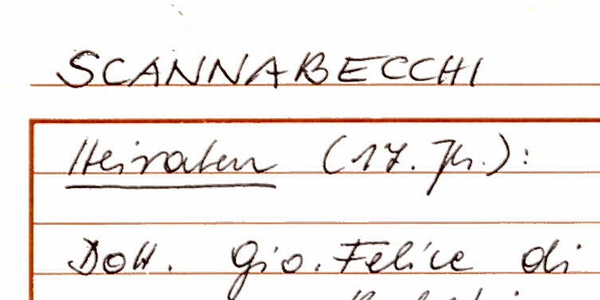 SCANNABECCHI
Heiraten (17. Jh.):
Dott. Gio. Felice di